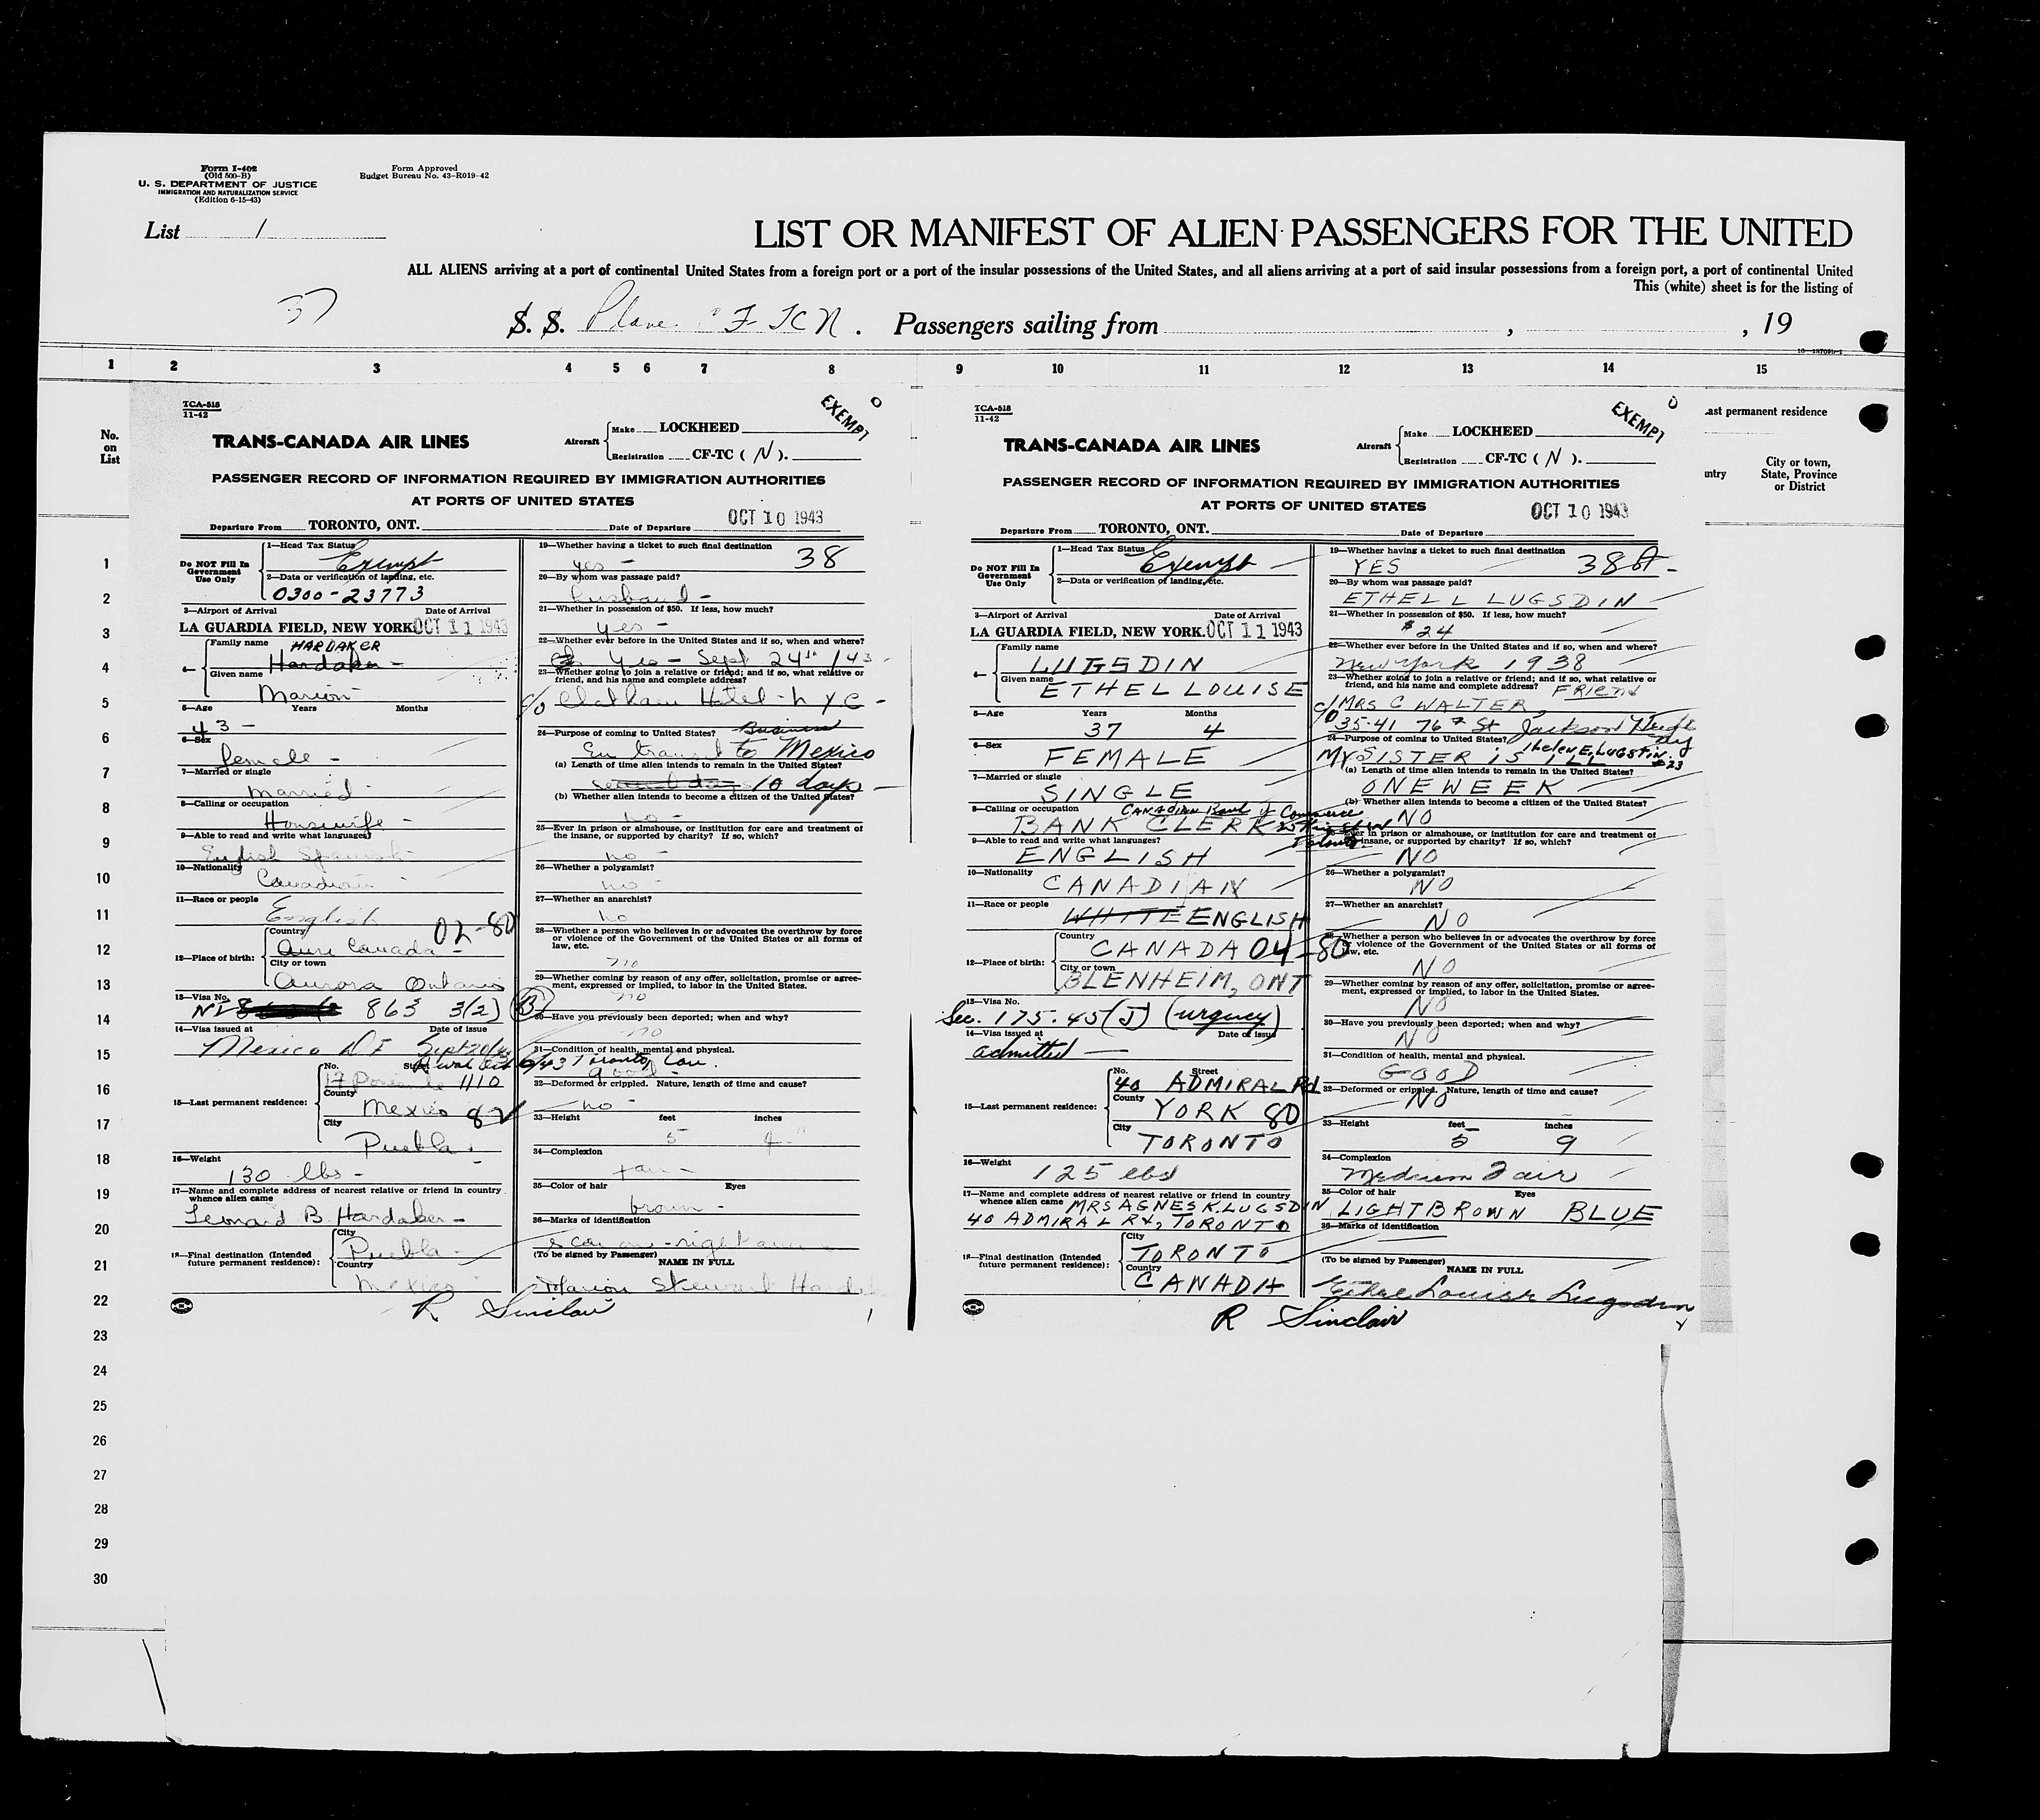 Form I-402
(Old 500-B)
U. S. DEPARTMENT OF JUSTICE
IMMIGRATION AND NATURALIZATION SERVICE
(Edition 6-15-43)
Form Approved
Budget Bureau No. 43-R019-42
List 1
LIST OR MANIFEST OF ALIEN PASSENGERS FOR THE UNITED
ALL ALIENS arriving at a port of continental United States from a foreign port or a port of the insular possessions of the United States, and all aliens arriving at a port of said insular possessions from a foreign port, a port of continental United
This (white) sheet is for the listing of
37
S. S. Plane CF TCN. Passengers sailing from , , 19
1 2 3 4 5 6 7 8 9 10 11 12 13 14 15
No.
on
List
1
2
3
4
5
6
7
8
9
10
11
12
13
14
15
16
17
18
19
20
21
22
23
24
25
26
27
28
29
30
TCA-518
11-42
EXEMPT
TRANS-CANADA AIR LINES
Aircraft Make LOCKHEED
Registration CF-TC ( N ).
PASSENGER RECORD OF INFORMATION REQUIRED BY IMMIGRATION AUTHORITIES
AT PORTS OF UNITED STATES
OCT 10 1943
Departure From TORONTO, ONT. Date of Departure
Do NOT Fill In
Government
Use Only
1—Head Tax Status
Exempt
2—Data or verification of landing, etc.
0300-23773
3—Airport of Arrival Date of Arrival
LA GUARDIA FIELD, NEW YORK. OCT 11 1943
4— Family name HARDAKER
Hardaker -
Given name
Marion
5—Age Years Months
43 -
6—Sex
female -
7—Married or single
married
8—Calling or occupation
Housewife -
9—Able to read and write what languages?
English Spanish
10—Nationality
Canadian
11—Race or people
English
02-80
12—Place of birth: Country
Canada -
City or town
Aurora Ontario
13—Visa No.
863 3(2) B
14—Visa issued at Date of issue
Mexico DF Sept 20/43
Toronto Can.
15—Last permanent residence: No. Street
1110
County
Mexico 82
City
Puebla.
16—Weight
130 lbs -
17—Name and complete address of nearest relative or friend in country
whence alien came
Leonard B. Hardaker -
18—Final destination (Intended
future permanent residence): City
Puebla -
Country
Mexico
19—Whether having a ticket to such final destination
yes - 38
20—By whom was passage paid?
husband -
21—Whether in possession of $50. If less, how much?
yes -
22—Whether ever before in the United States and if so, when and where?
yes - Sept 24th /43 -
23—Whether going to join a relative or friend; and if so, what relative or
friend, and his name and complete address?
c/o Chatham Hotel - N Y C -
24—Purpose of coming to United States? Business
En transit to Mexico
(a) Length of time alien intends to remain in the United States?
10 days
(b) Whether alien intends to become a citizen of the United States?
no -
25—Ever in prison or almshouse, or institution for care and treatment of
the insane, or supported by charity? If so, which?
no -
26—Whether a polygamist?
no -
27—Whether an anarchist?
no
28—Whether a person who believes in or advocates the overthrow by force
or violence of the Government of the United States or all forms of
law, etc.
no
29—Whether coming by reason of any offer, solicitation, promise or agree-
ment, expressed or implied, to labor in the United States.
no
30—Have you previously been deported; when and why?
no
31—Condition of health, mental and physical.
good
32—Deformed or crippled. Nature, length of time and cause?
no -
33—Height feet inches
5 4"
34—Complexion
fair -
35—Color of hair Eyes
brown -
36—Marks of identification
scar on right arm
(To be signed by Passenger) NAME IN FULL
Marion Stewart Hardaker
R Sinclair
TCA-518
11-42
EXEMPT
TRANS-CANADA AIR LINES
Aircraft Make LOCKHEED
Registration CF-TC ( N ).
PASSENGER RECORD OF INFORMATION REQUIRED BY IMMIGRATION AUTHORITIES
AT PORTS OF UNITED STATES
OCT 10 1943
Departure From TORONTO, ONT. Date of Departure
Do NOT Fill In
Government
Use Only
1—Head Tax Status
Exempt
2—Data or verification of landing, etc.
3—Airport of Arrival Date of Arrival
LA GUARDIA FIELD, NEW YORK. OCT 11 1943
4— Family name
LUGSDIN
Given name
ETHEL LOUISE
5—Age Years Months
37 4
6—Sex
FEMALE
7—Married or single
SINGLE
8—Calling or occupation Canadian Bank of Commerce
BANK CLERK
Toronto
9—Able to read and write what languages?
ENGLISH
10—Nationality
CANADIAN
11—Race or people
WHITE ENGLISH
12—Place of birth: Country
CANADA 04-80
City or town
BLENHEIM, ONT
13—Visa No.
Sec. 175.45(J) (urgency)
14—Visa issued at Date of issue
admitted
15—Last permanent residence: No. Street
40 ADMIRAL Rd
County
YORK 80
City
TORONTO
16—Weight
125 lbs
17—Name and complete address of nearest relative or friend in country
whence alien came MRS AGNES K. LUGSDIN
40 ADMIRAL Rd, TORONTO
18—Final destination (Intended
future permanent residence): City
TORONTO
Country
CANADA
19—Whether having a ticket to such final destination
YES 38
20—By whom was passage paid?
ETHEL L LUGSDIN
21—Whether in possession of $50. If less, how much?
$24
22—Whether ever before in the United States and if so, when and where?
New York 1938
23—Whether going to join a relative or friend; and if so, what relative or
friend, and his name and complete address? Friend
c/o MRS C WALTER,
35-41 76th St Jackson
24—Purpose of coming to United States? Helen E. Lugsdin
MY SISTER IS ILL
(a) Length of time alien intends to remain in the United States?
ONE WEEK
(b) Whether alien intends to become a citizen of the United States?
NO
25—Ever in prison or almshouse, or institution for care and treatment of
insane, or supported by charity? If so, which?
NO
26—Whether a polygamist?
NO
27—Whether an anarchist?
NO
28—Whether a person who believes in or advocates the overthrow by force
or violence of the Government of the United States or all forms of
law, etc.
NO
29—Whether coming by reason of any offer, solicitation, promise or agree-
ment, expressed or implied, to labor in the United States.
NO
30—Have you previously been deported; when and why?
NO
31—Condition of health, mental and physical.
GOOD
32—Deformed or crippled. Nature, length of time and cause?
NO
33—Height feet inches
5 9
34—Complexion
Medium Fair
35—Color of hair Eyes
LIGHT BROWN BLUE
36—Marks of identification
(To be signed by Passenger) NAME IN FULL
Ethel Louise Lugsdin
R Sinclair
ast permanent residence
ntry
City or town,
State, Province
or District